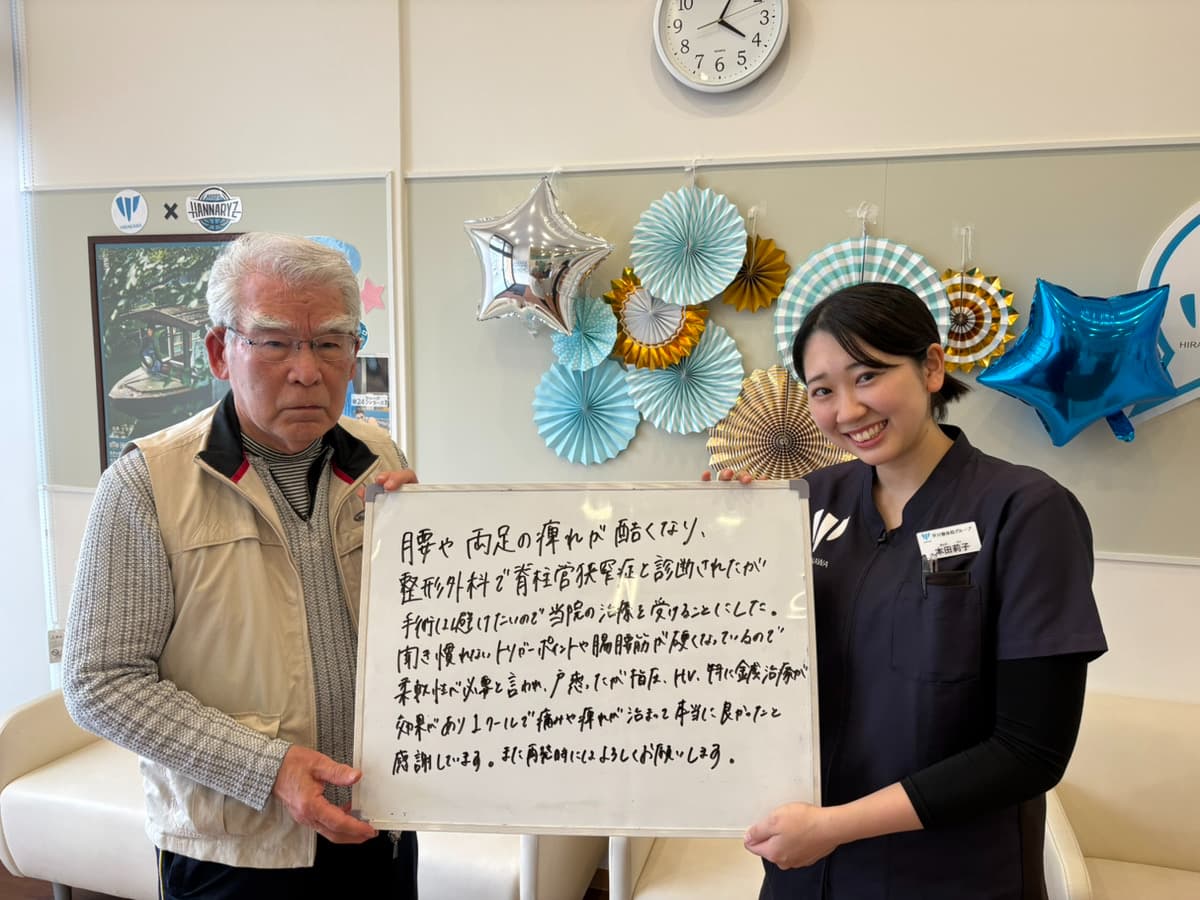 10 2 3 4 5 6 7 8 9
HIRAKAWA
×
HANNARYZ
HIRA
腰や両足の痺れが酷くなり、
整形外科で脊柱管狭窄症と診断されたが
手術は避けたいので当院の治療を受けることにした。
聞き慣れないトリガーポイントや腸腰筋が硬くなっているので
柔軟性が必要と言われ、戸惑ったが指圧、HV、特に金鍼治療が
効果があり1クールで痛みや痺れが治まって本当に良かったと
感謝しています。また再発時にはよろしくお願いします。
平川接骨院グループ
本田莉子